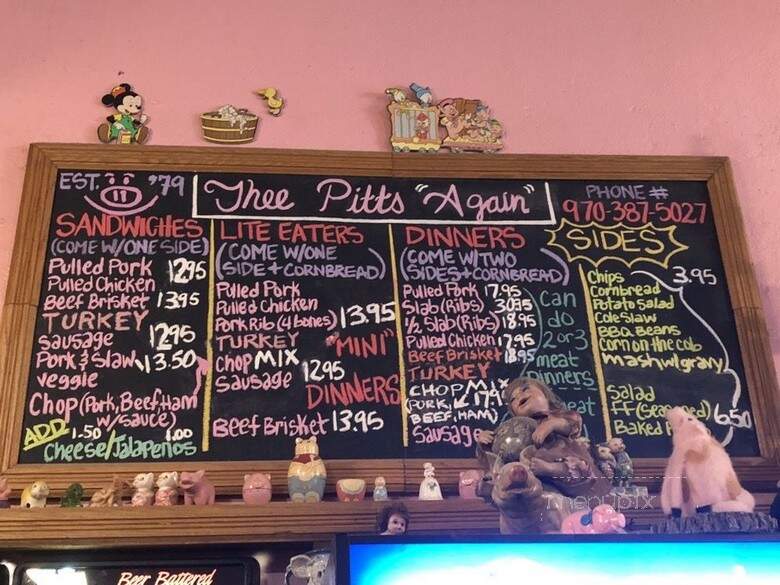 EST. '79
Thee Pitts "Again"
PHONE #
970-387-5027
SANDWICHES
(COME W/ONE SIDE)
Pulled Pork 1295
Pulled Chicken
Beef Brisket 1395
TURKEY
Sausage 1295
Pork & Slaw 13.50
veggie
Chop (Pork, Beef, Ham
w/sauce)
ADD 1.50 1.00
Cheese/Jalapeños
LITE EATERS
(COME W/ONE
SIDE + CORNBREAD)
Pulled Pork
Pulled Chicken
Pork Rib (4 bones) 13.95
TURKEY "MINI"
Chop MIX
Sausage 1295
DINNERS
Beef Brisket 13.95
DINNERS
(COME W/TWO
SIDES + CORNBREAD)
Pulled Pork 17.95
Slab (Ribs) 30.95
1/2 Slab (Ribs) 18.95
Pulled Chicken 1795
Beef Brisket 1895
TURKEY
CHOP MIX
(PORK, 179
BEEF, HAM)
Sausage
Can
do
2 or 3
meat
Dinners
SIDES
Chips 3.95
Cornbread
Potato Salad
Cole Slaw
BBQ Beans
Corn on the cob
mash w/gravy
Salad
FF (Seasoned) 6.50
Baked
Beer Battered
menupix